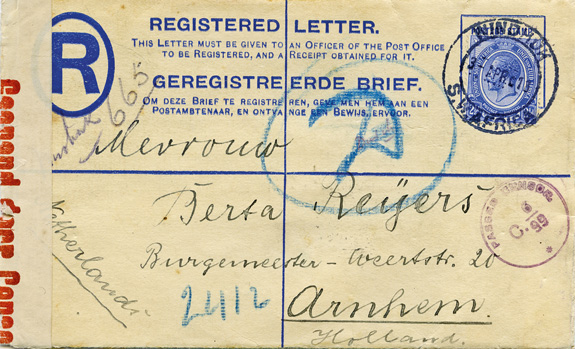 R
REGISTERED LETTER.
THIS LETTER MUST BE GIVEN TO AN OFFICER OF THE POST OFFICE
TO BE REGISTERED, AND A RECEIPT OBTAINED FOR IT.
GEREGISTREERDE BRIEF.
OM DEZE BRIEF TE REGISTREREN, GEVE MEN HEM AAN EEN
POSTAMBTENAAR, EN ONTVANGE EEN BEWIJS, ERVOOR.
WINDHUK
S.W. AFRICA
665
Mevrouw
Berta Reijers
Burgemeester-Weertsstr. 20
Arnhem.
Holland.
Netherlands
2412
PASSED CENSOR.
C. 99